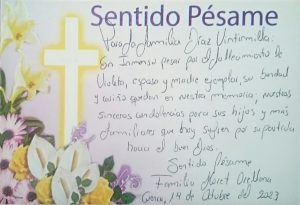 Sentido Pésame
Para la familia Díaz Vintimilla:
Con Inmenso pesar por el fallecimiento de
Violeta, esposa y madre ejemplar, su bondad
y cariño quedan en nuestra memoria, nuestras
sinceras condolencias para sus hijos y más
familiares que hoy sufren por su partida
hacia el bien Dios.
Sentido Pésame
Familia Moret Orellana
Cuenca, 14 de Octubre del 2023